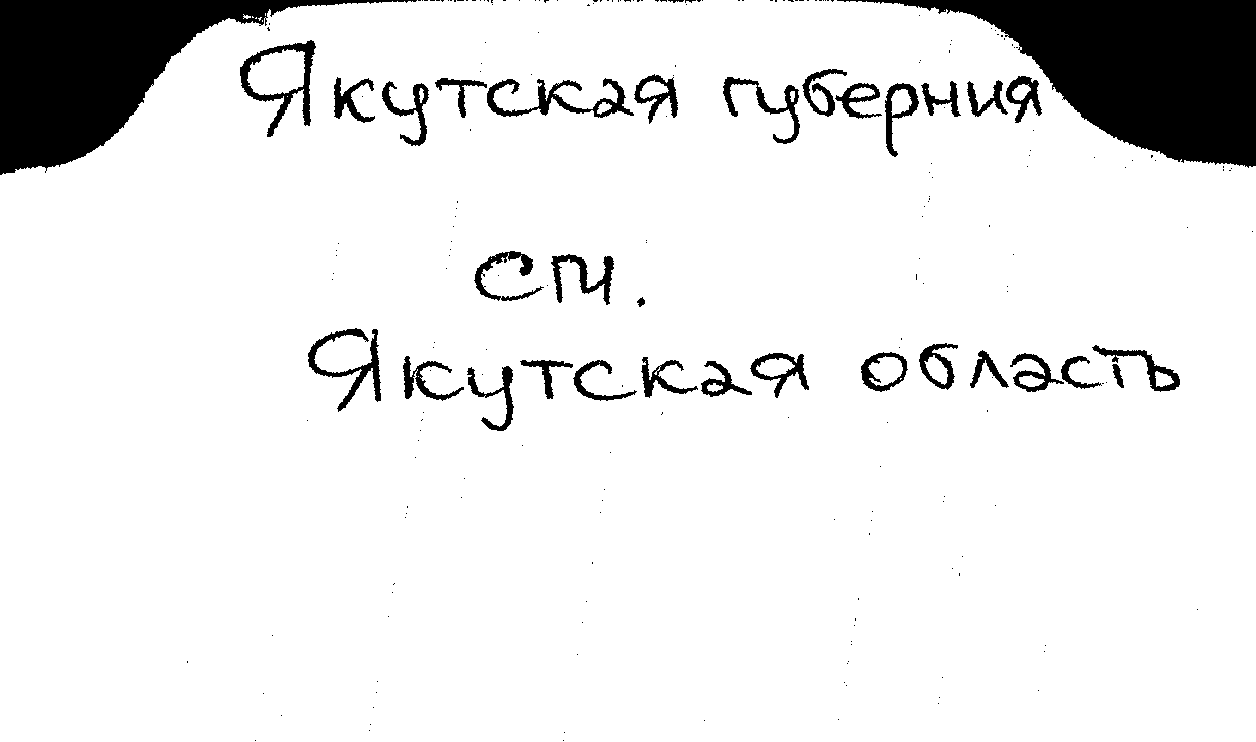 Якутская губерния
см.
Якутская область